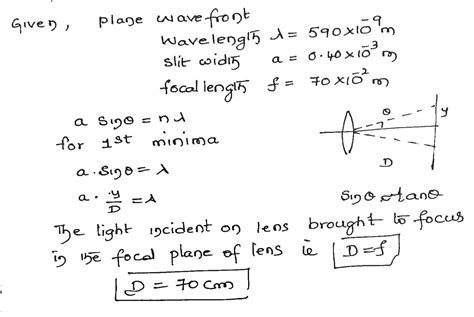 Given, plane wavefront
Wavelength λ = 590×10⁻⁹m
slit width a = 0.40×10⁻³m
focal length f = 70×10⁻²m
a sinθ = nλ
for 1st minima
a. sinθ = λ
a. y/D = λ
θ
y
D
sinθ ≈ tanθ
The light incident on lens brought to focus
in the focal plane of lens ie D=f
D = 70cm